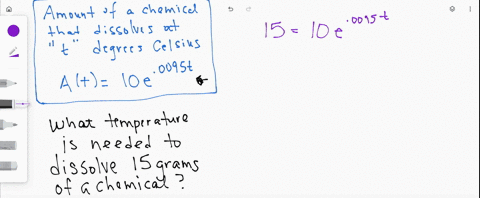 Amount of a chemical
that dissolves at
"t" degrees Celsius
A(t) = 10e^.0095t
15 = 10e^.0095t
What temperature
is needed to
dissolve 15 grams
of a chemical?